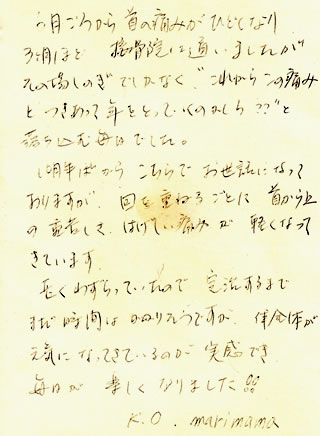 六月ごろから首の痛みがひどくなり
3ヶ月ほど接骨院に通いましたが
その場しのぎでしかなく、"これからこの痛み
とつきあって年をとっていくのかしら??"と
落ち込む毎日でした。
昨年末からこちらでお世話になって
おりますが、回を重ねるごとに首から上
の重苦しさ、はげしい痛みが軽くなって
きています。
長くわずらっていたので完治するまで
まだ時間はかかりそうですが、体全体が
元気になってきているのが実感でき
毎日が楽しくなりました!!
K.O. marimama